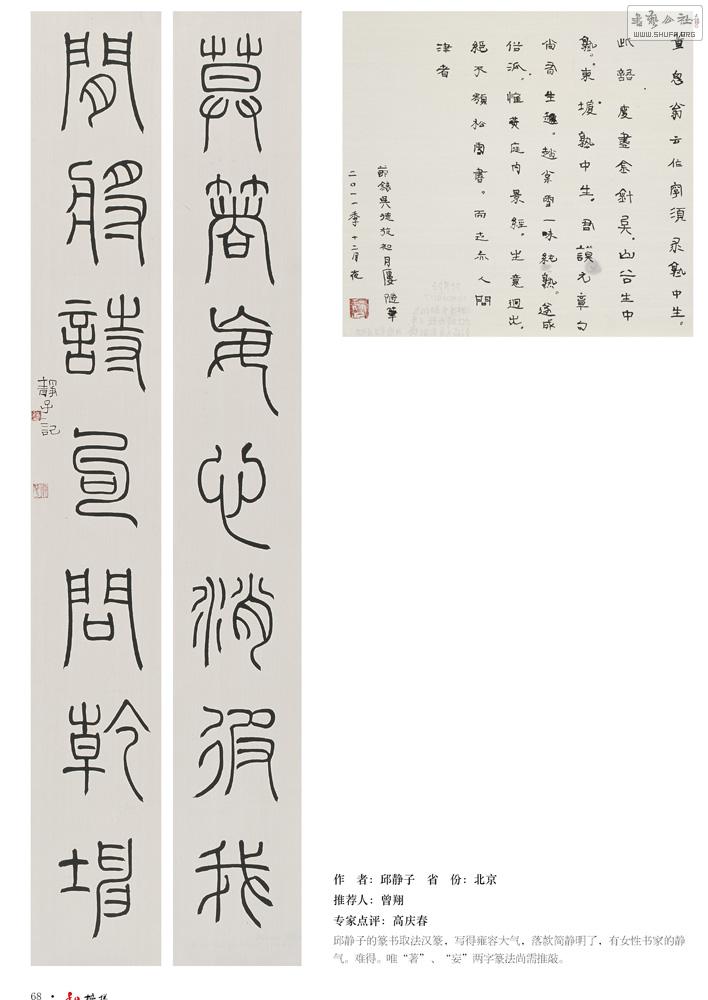 莫著妄心消彼我
將詩問乾坤
靜子記
董思翁云作字須求熟中生。
此語度盡金針矣。山谷生中
熟。東坡熟中生。君謨元章
尚有生趣。趙松雪一味純熟。遂成
俗派。惟黃庭内景經。生意迥出。
絕不類松雪書。而人問
津者
節錄吳德旋初月廔隨筆
二〇一一季十二月夜
書藝公社
WWW.SHUFA.ORG
作 者：邱静子 省 份：北京
推荐人：曾翔
专家点评：高庆春
邱静子的篆书取法汉篆，写得雍容大气，落款简静明了，有女性书家的静
气。难得。唯“著”、“妄”两字篆法尚需推敲。
68 ·